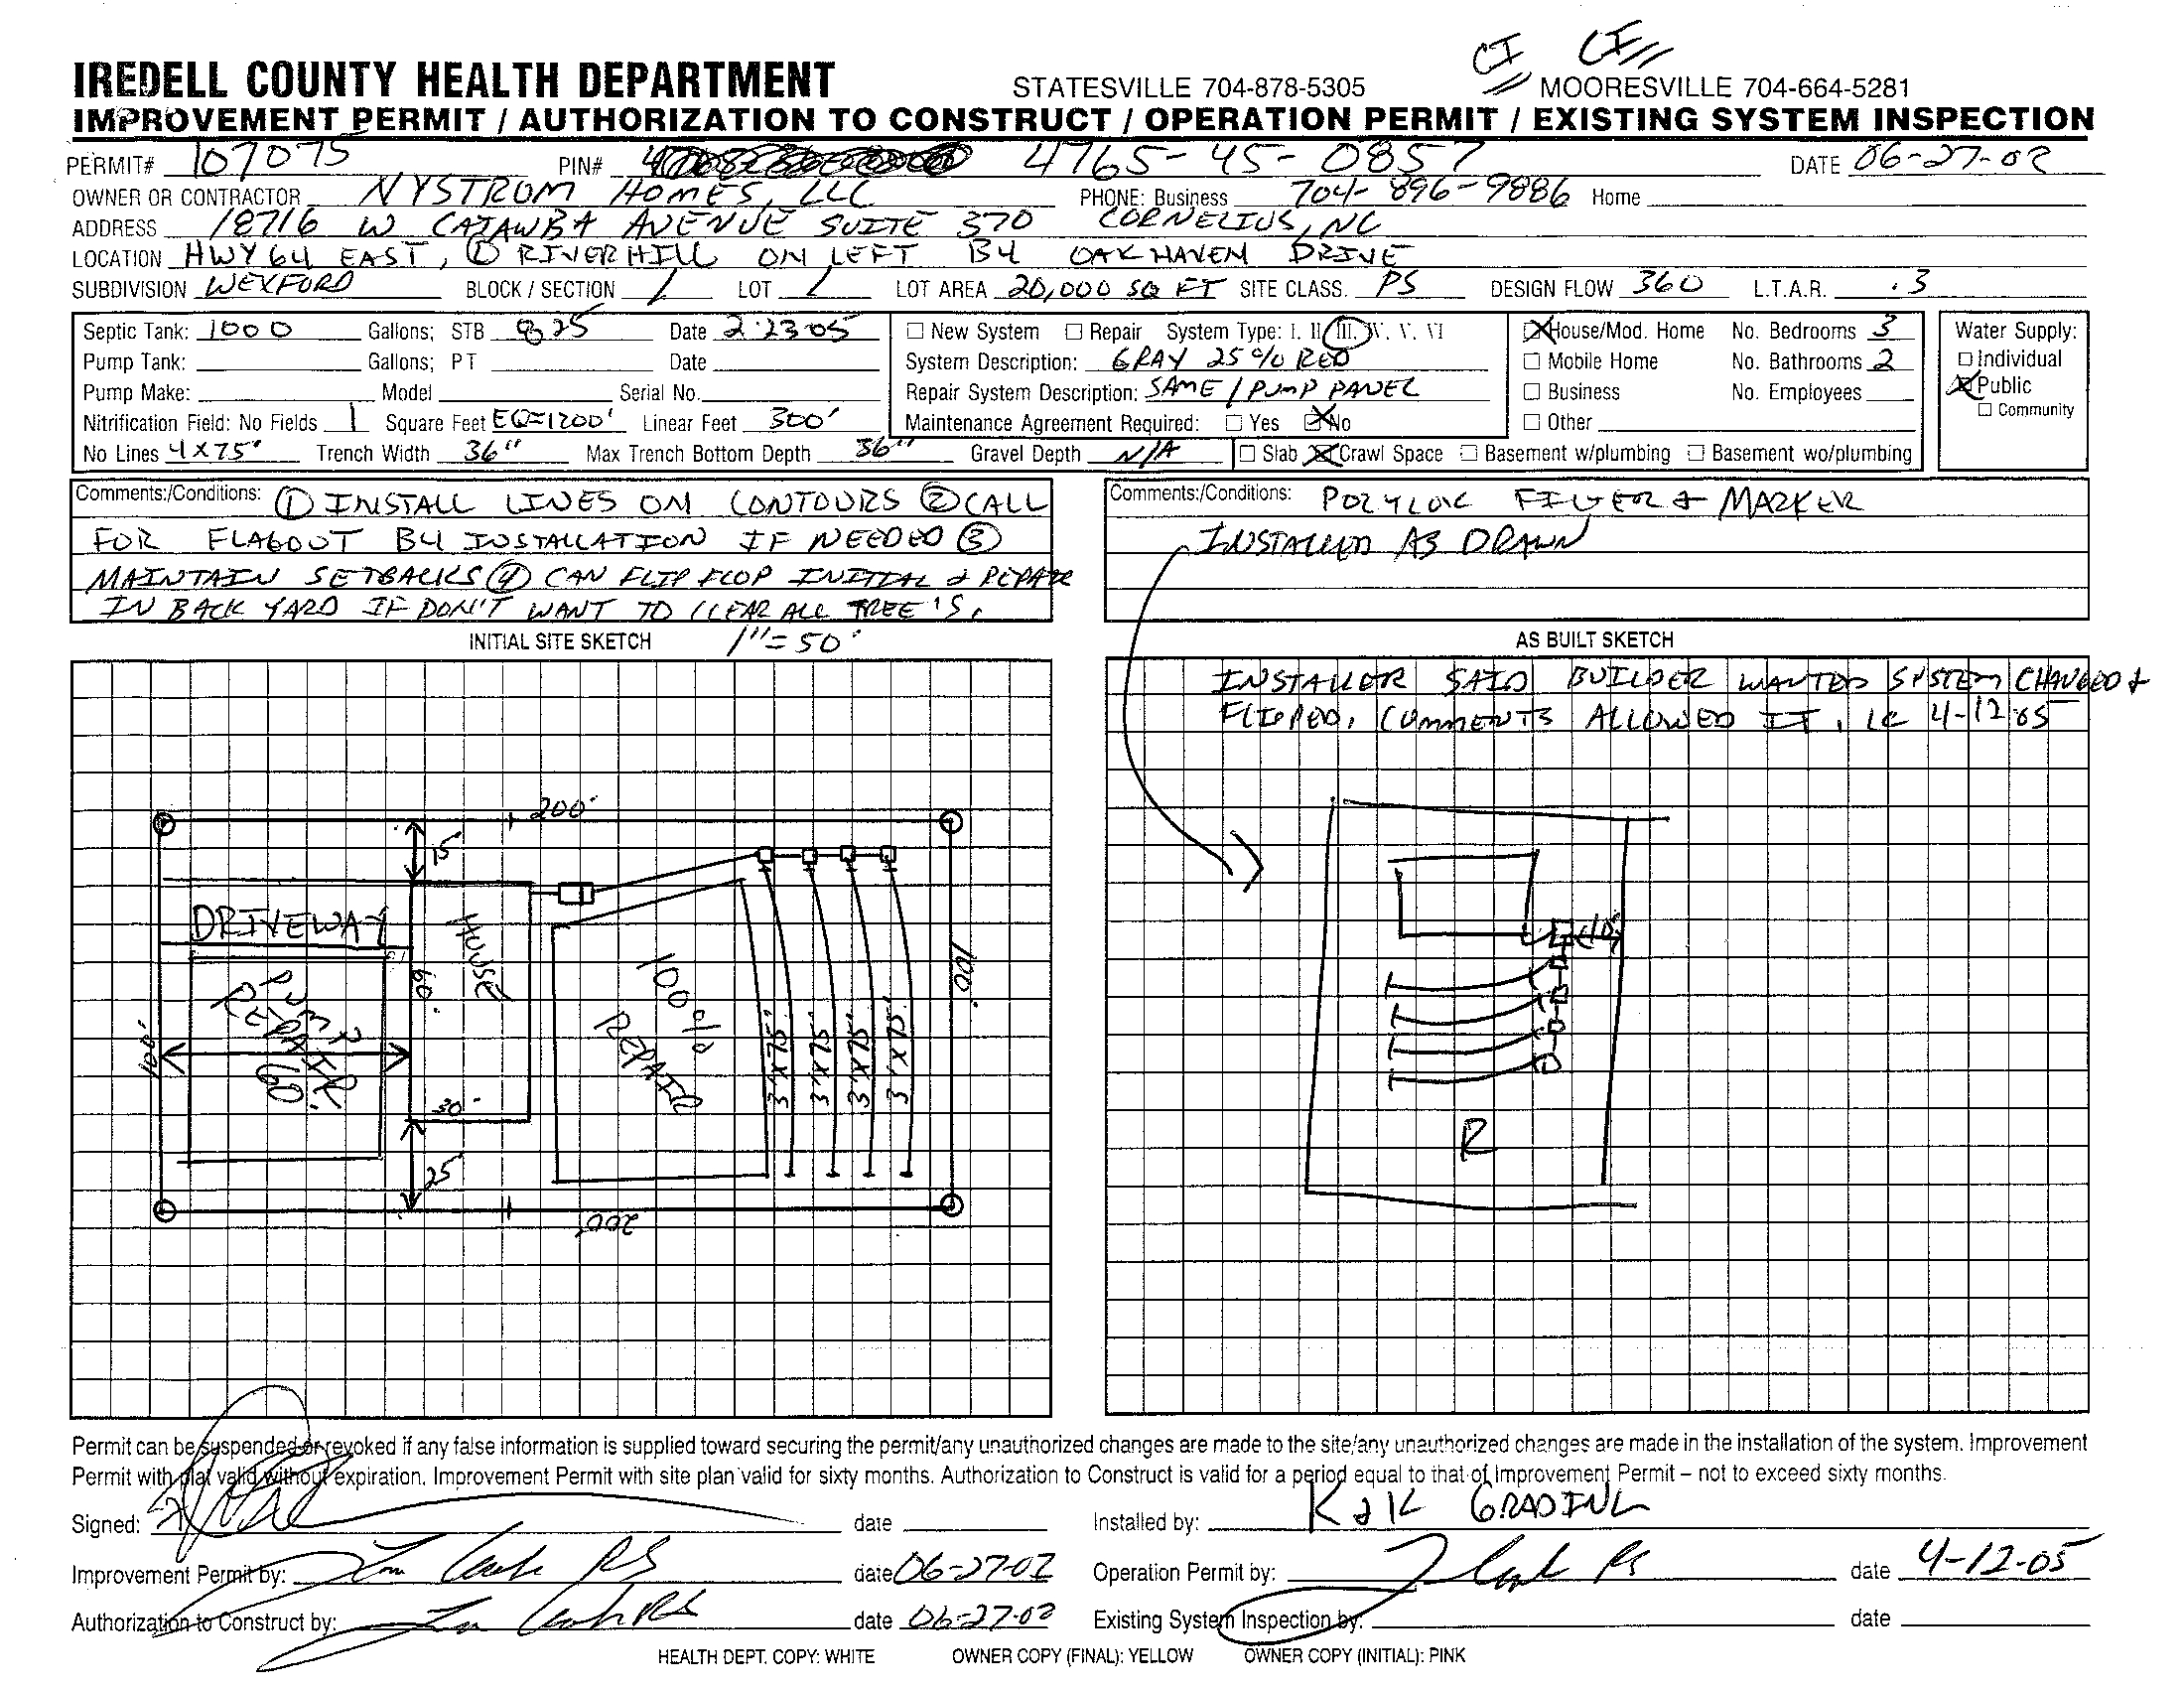 CI CI
IREDELL COUNTY HEALTH DEPARTMENT STATESVILLE 704-878-5305 MOORESVILLE 704-664-5281
IMPROVEMENT PERMIT / AUTHORIZATION TO CONSTRUCT / OPERATION PERMIT / EXISTING SYSTEM INSPECTION
PERMIT# 107075 PIN# 4765-45-0857 DATE 06-27-02
OWNER OR CONTRACTOR NYSTROM HOMES, LLC PHONE: Business 704-896-9886 Home
ADDRESS 18716 W CATAWBA AVENUE SUITE 370 CORNELIUS, NC
LOCATION HWY 64 EAST, L RIVER HILL ON LEFT B4 OAK HAVEN DRIVE
SUBDIVISION WEXFORD BLOCK / SECTION / LOT 1 LOT AREA 20,000 SQ FT SITE CLASS. PS DESIGN FLOW 360 L.T.A.R. .3
Septic Tank: 1000 Gallons; STB 825 Date 2-23-05 □ New System □ Repair System Type: I. II. III. IV. V. VI House/Mod. Home No. Bedrooms 3 Water Supply:
Pump Tank: Gallons; PT Date System Description: GRAY 25% RED □ Mobile Home No. Bathrooms 2 □ Individual
Pump Make: Model Serial No. Repair System Description: SAME / PUMP PANEL □ Business No. Employees Public
Nitrification Field: No Fields 1 Square Feet EQ=1200' Linear Feet 300' Maintenance Agreement Required: □ Yes No □ Other □ Community
No Lines 4X75' Trench Width 36" Max Trench Bottom Depth 36" Gravel Depth N/A □ Slab Crawl Space □ Basement w/plumbing □ Basement wo/plumbing
Comments:/Conditions: ① INSTALL LINES ON CONTOURS ② CALL
FOR FLAGOUT B4 INSTALLATION IF NEEDED ③
MAINTAIN SETBACKS ④ CAN FLIP FLOP INITIAL & REPAIR
IN BACK YARD IF DON'T WANT TO CLEAR ALL TREE'S.
Comments:/Conditions: POLYLOK FILTER & MARKER
INSTALLED AS DRAWN
INITIAL SITE SKETCH 1"=50'
200'
15'
DRIVEWAY
HOUSE
60'
100'
PUMP REPAIR
30'
25'
100% REPAIR
3'X75'
3'X75'
3'X75'
3'X75'
100'
200'
AS BUILT SKETCH
INSTALLER SAID BUILDER WANTED SYSTEM CHANGED &
FLIPPED, COMMENTS ALLOWED IT. LC 4-12-05
10'
R
Permit can be suspended or revoked if any false information is supplied toward securing the permit/any unauthorized changes are made to the site/any unauthorized changes are made in the installation of the system. Improvement
Permit with plat valid without expiration. Improvement Permit with site plan valid for sixty months. Authorization to Construct is valid for a period equal to that of Improvement Permit – not to exceed sixty months.
Signed: date Installed by: K & K GRADING
Improvement Permit by: RS date 06-27-02 Operation Permit by: RS date 4-12-05
Authorization to Construct by: RS date 06-27-02 Existing System Inspection by: date
HEALTH DEPT. COPY: WHITE OWNER COPY (FINAL): YELLOW OWNER COPY (INITIAL): PINK